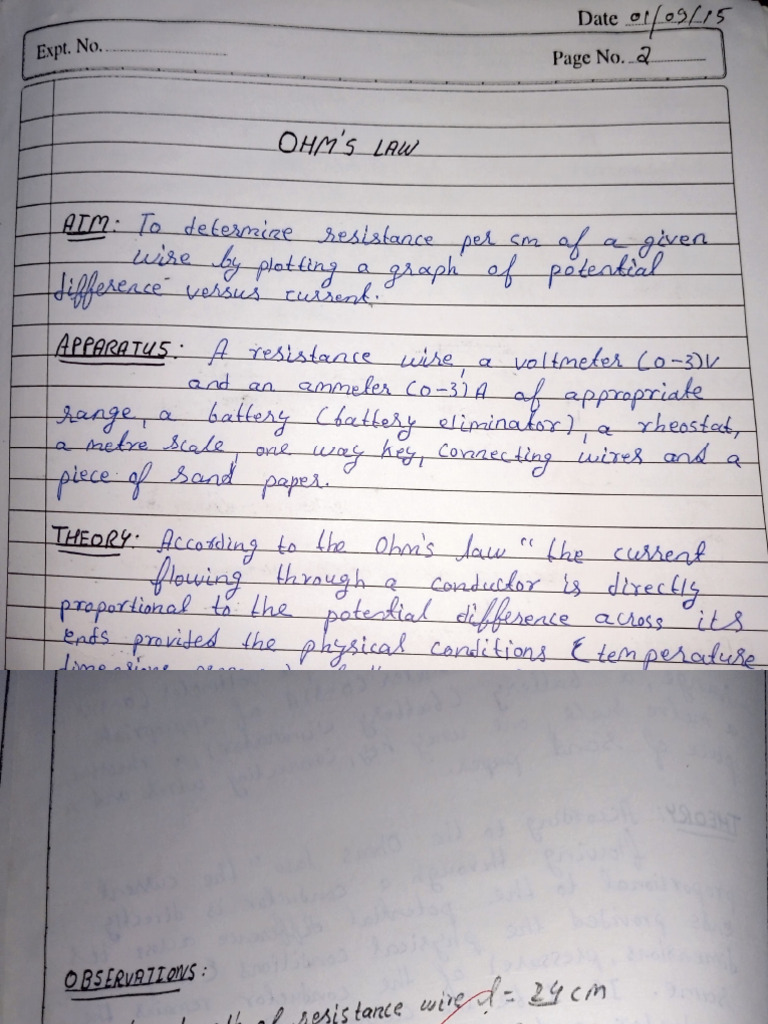 Date 01/09/15
Expt. No.
Page No. 2
OHM'S LAW
AIM: To determine resistance per cm of a given
wire by plotting a graph of potential
difference versus current.
APPARATUS: A resistance wire, a voltmeter (0-3)V
and an ammeter (0-3)A of appropriate
range, a battery (battery eliminator), a rheostat,
a metre scale, one way key, connecting wires and a
piece of sand paper.
THEORY: According to the Ohm's law "the current
flowing through a conductor is directly
proportional to the potential difference across its
ends provided the physical conditions (temperature
dimensions
OBSERVATIONS:
of resistance wire l = 24 cm